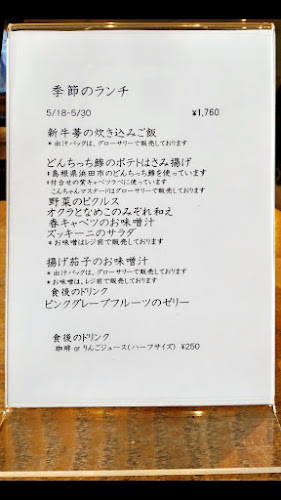 季節のランチ
5/18-5/30 ¥1,760
新牛蒡の炊き込みご飯
*出汁パックは、グローサリーで販売しております
どんちっち鯵のポテトはさみ揚げ
*島根県浜田市のどんちっち鯵を使っています
*付合せの紫キャベツラペに使っています
こんちゃんマスタードはグローサリーで販売しております
野菜のピクルス
オクラとなめこのみぞれ和え
春キャベツのお味噌汁
ズッキーニのサラダ
*お味噌はレジ前で販売しております
揚げ茄子のお味噌汁
*出汁パックは、グローサリーで販売しております
*お味噌は、レジ前で販売しております
食後のドリンク
ピンクグレープフルーツのゼリー
食後のドリンク
珈琲 or りんごジュース(ハーフサイズ) ¥250